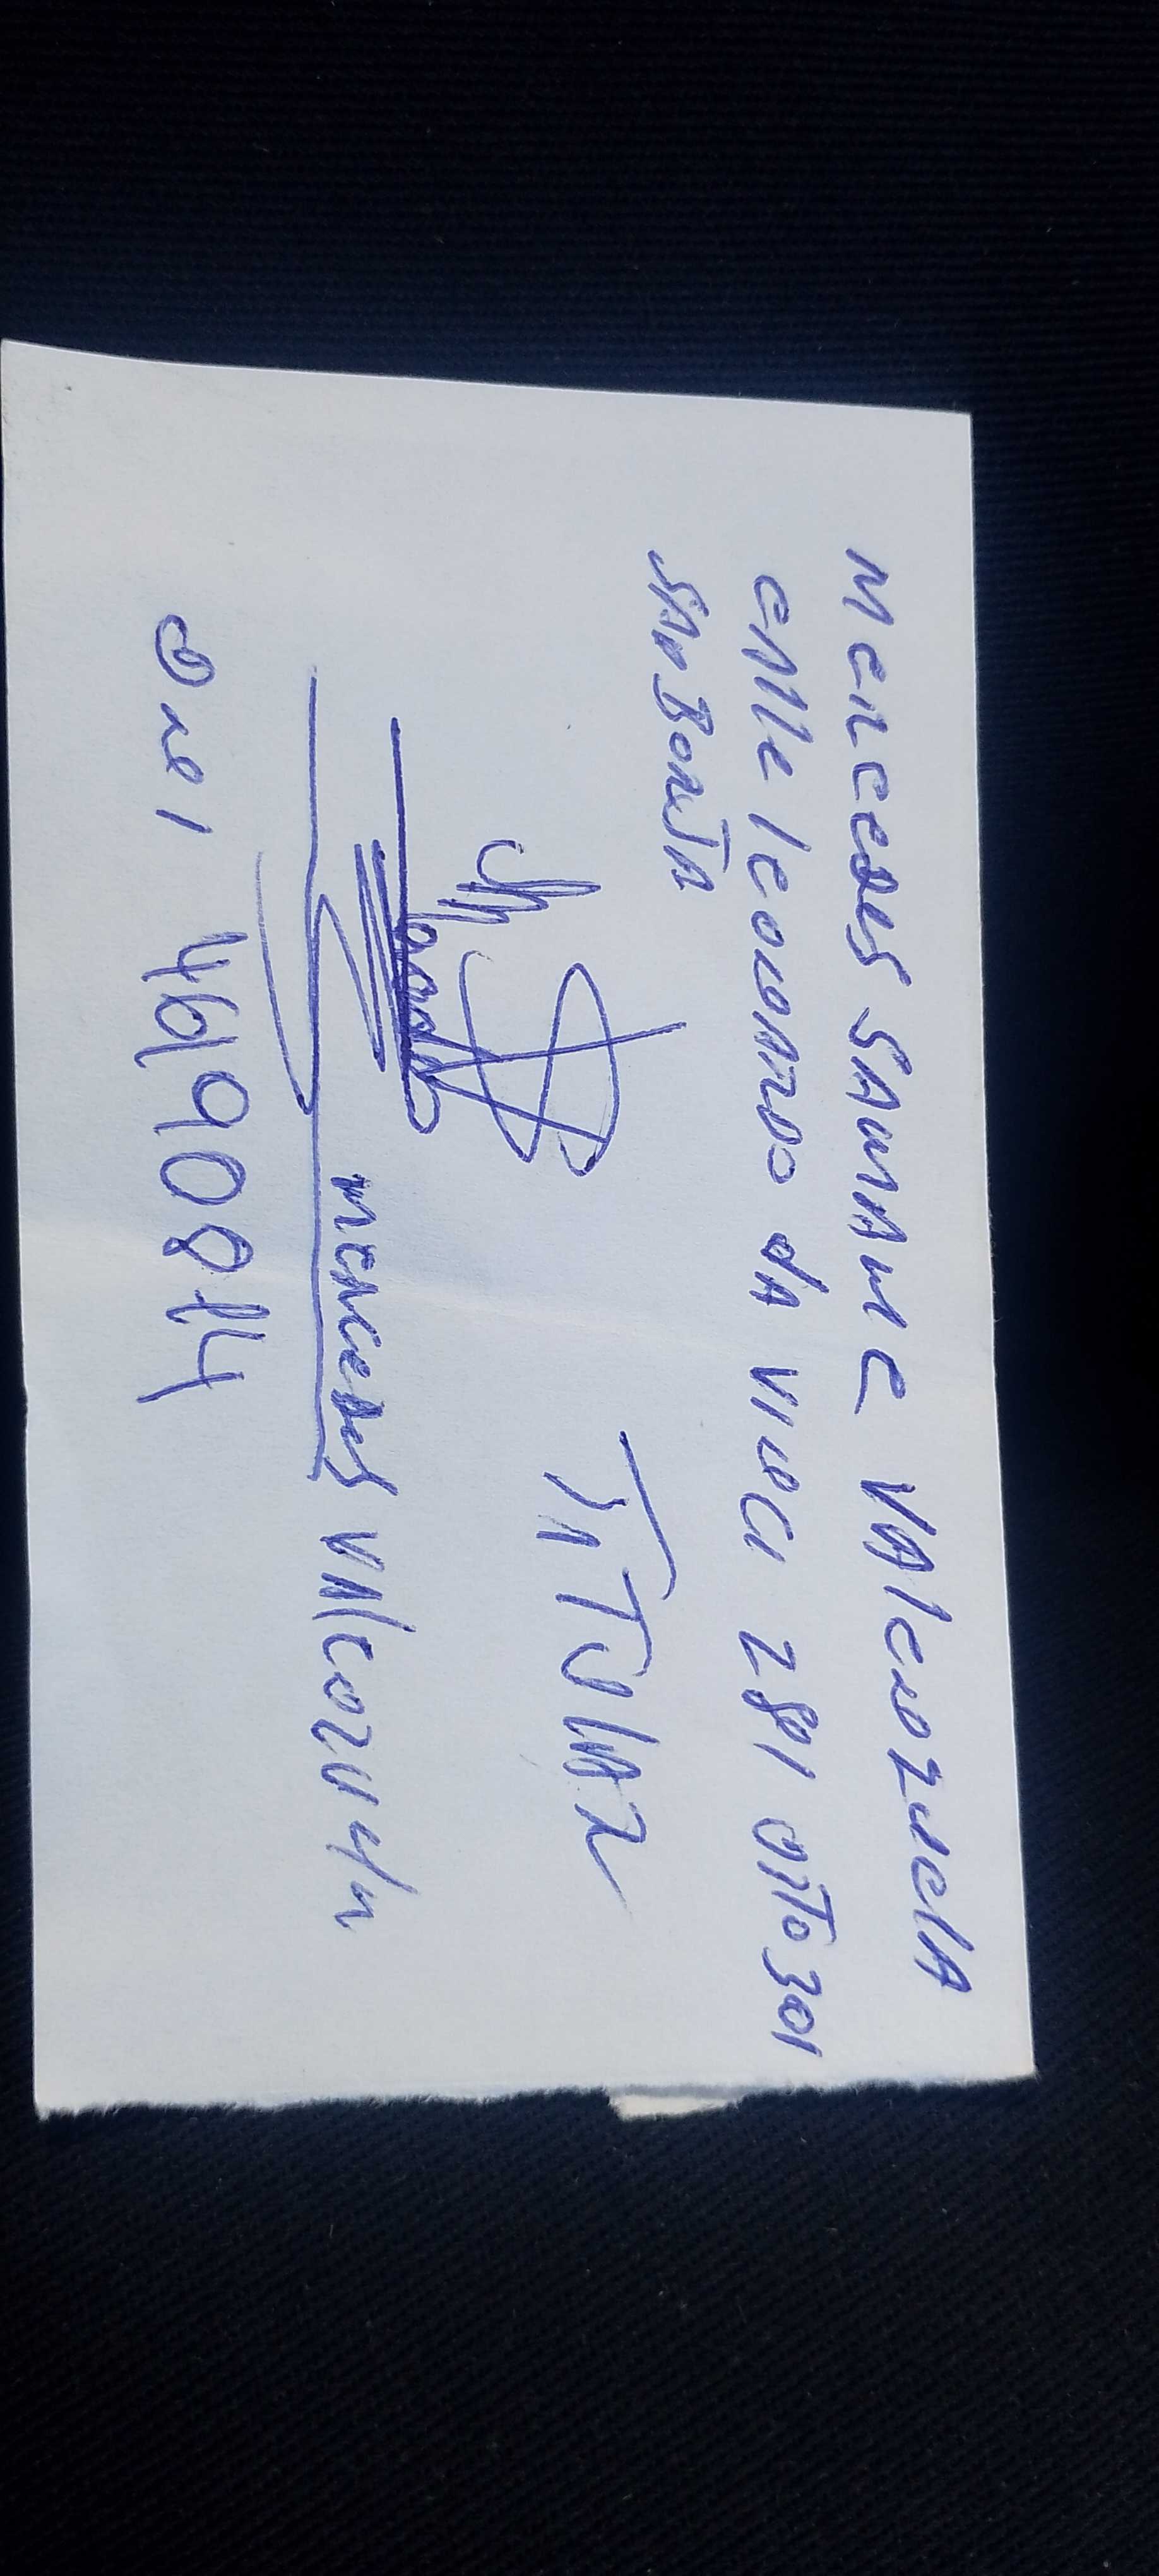 Mercedes SAMAME VAlenzuelA
CAlle leonardo dA Vinci 281 DPTO 301
SAN BorjA
TiTulAr
mercedes VAlenzuelA
DNI 46990814